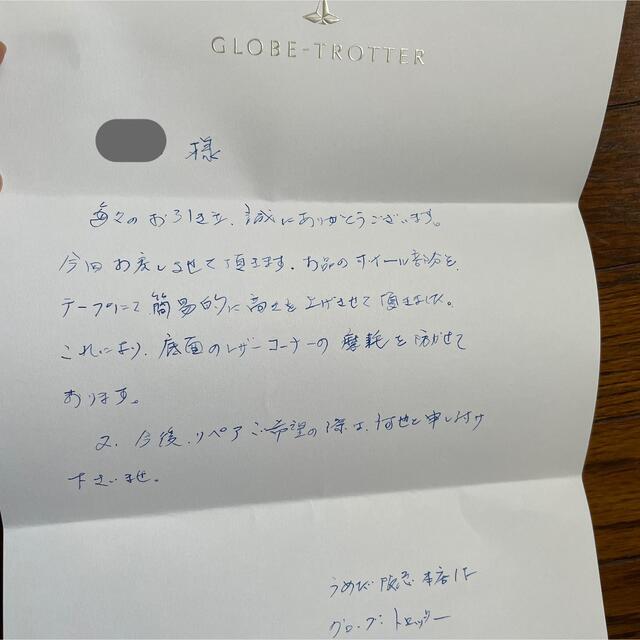 GLOBE-TROTTER
様
毎々のお引き立、誠にありがとうございます。
今回お戻しさせて頂きます、お品のホイール部分を、
テープにて簡易的に高さを上げさせて頂きました。
これにより、底面のレザーコーナーの摩耗を防がせて
おります。
又、今後、リペアご希望の際は、何也と申し付け
下さいませ。
うめだ阪急本店1F
グローブ・トロッター